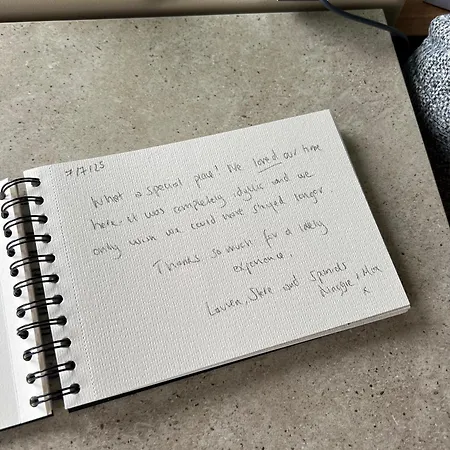 7/7/25
What a special place! We loved our time
here. it was completely idyllic and we
only wish we could have stayed longer.
Thanks so much for a lovely
experience.
Lauren, Steve and Spaniels
Maggie + Mia
x